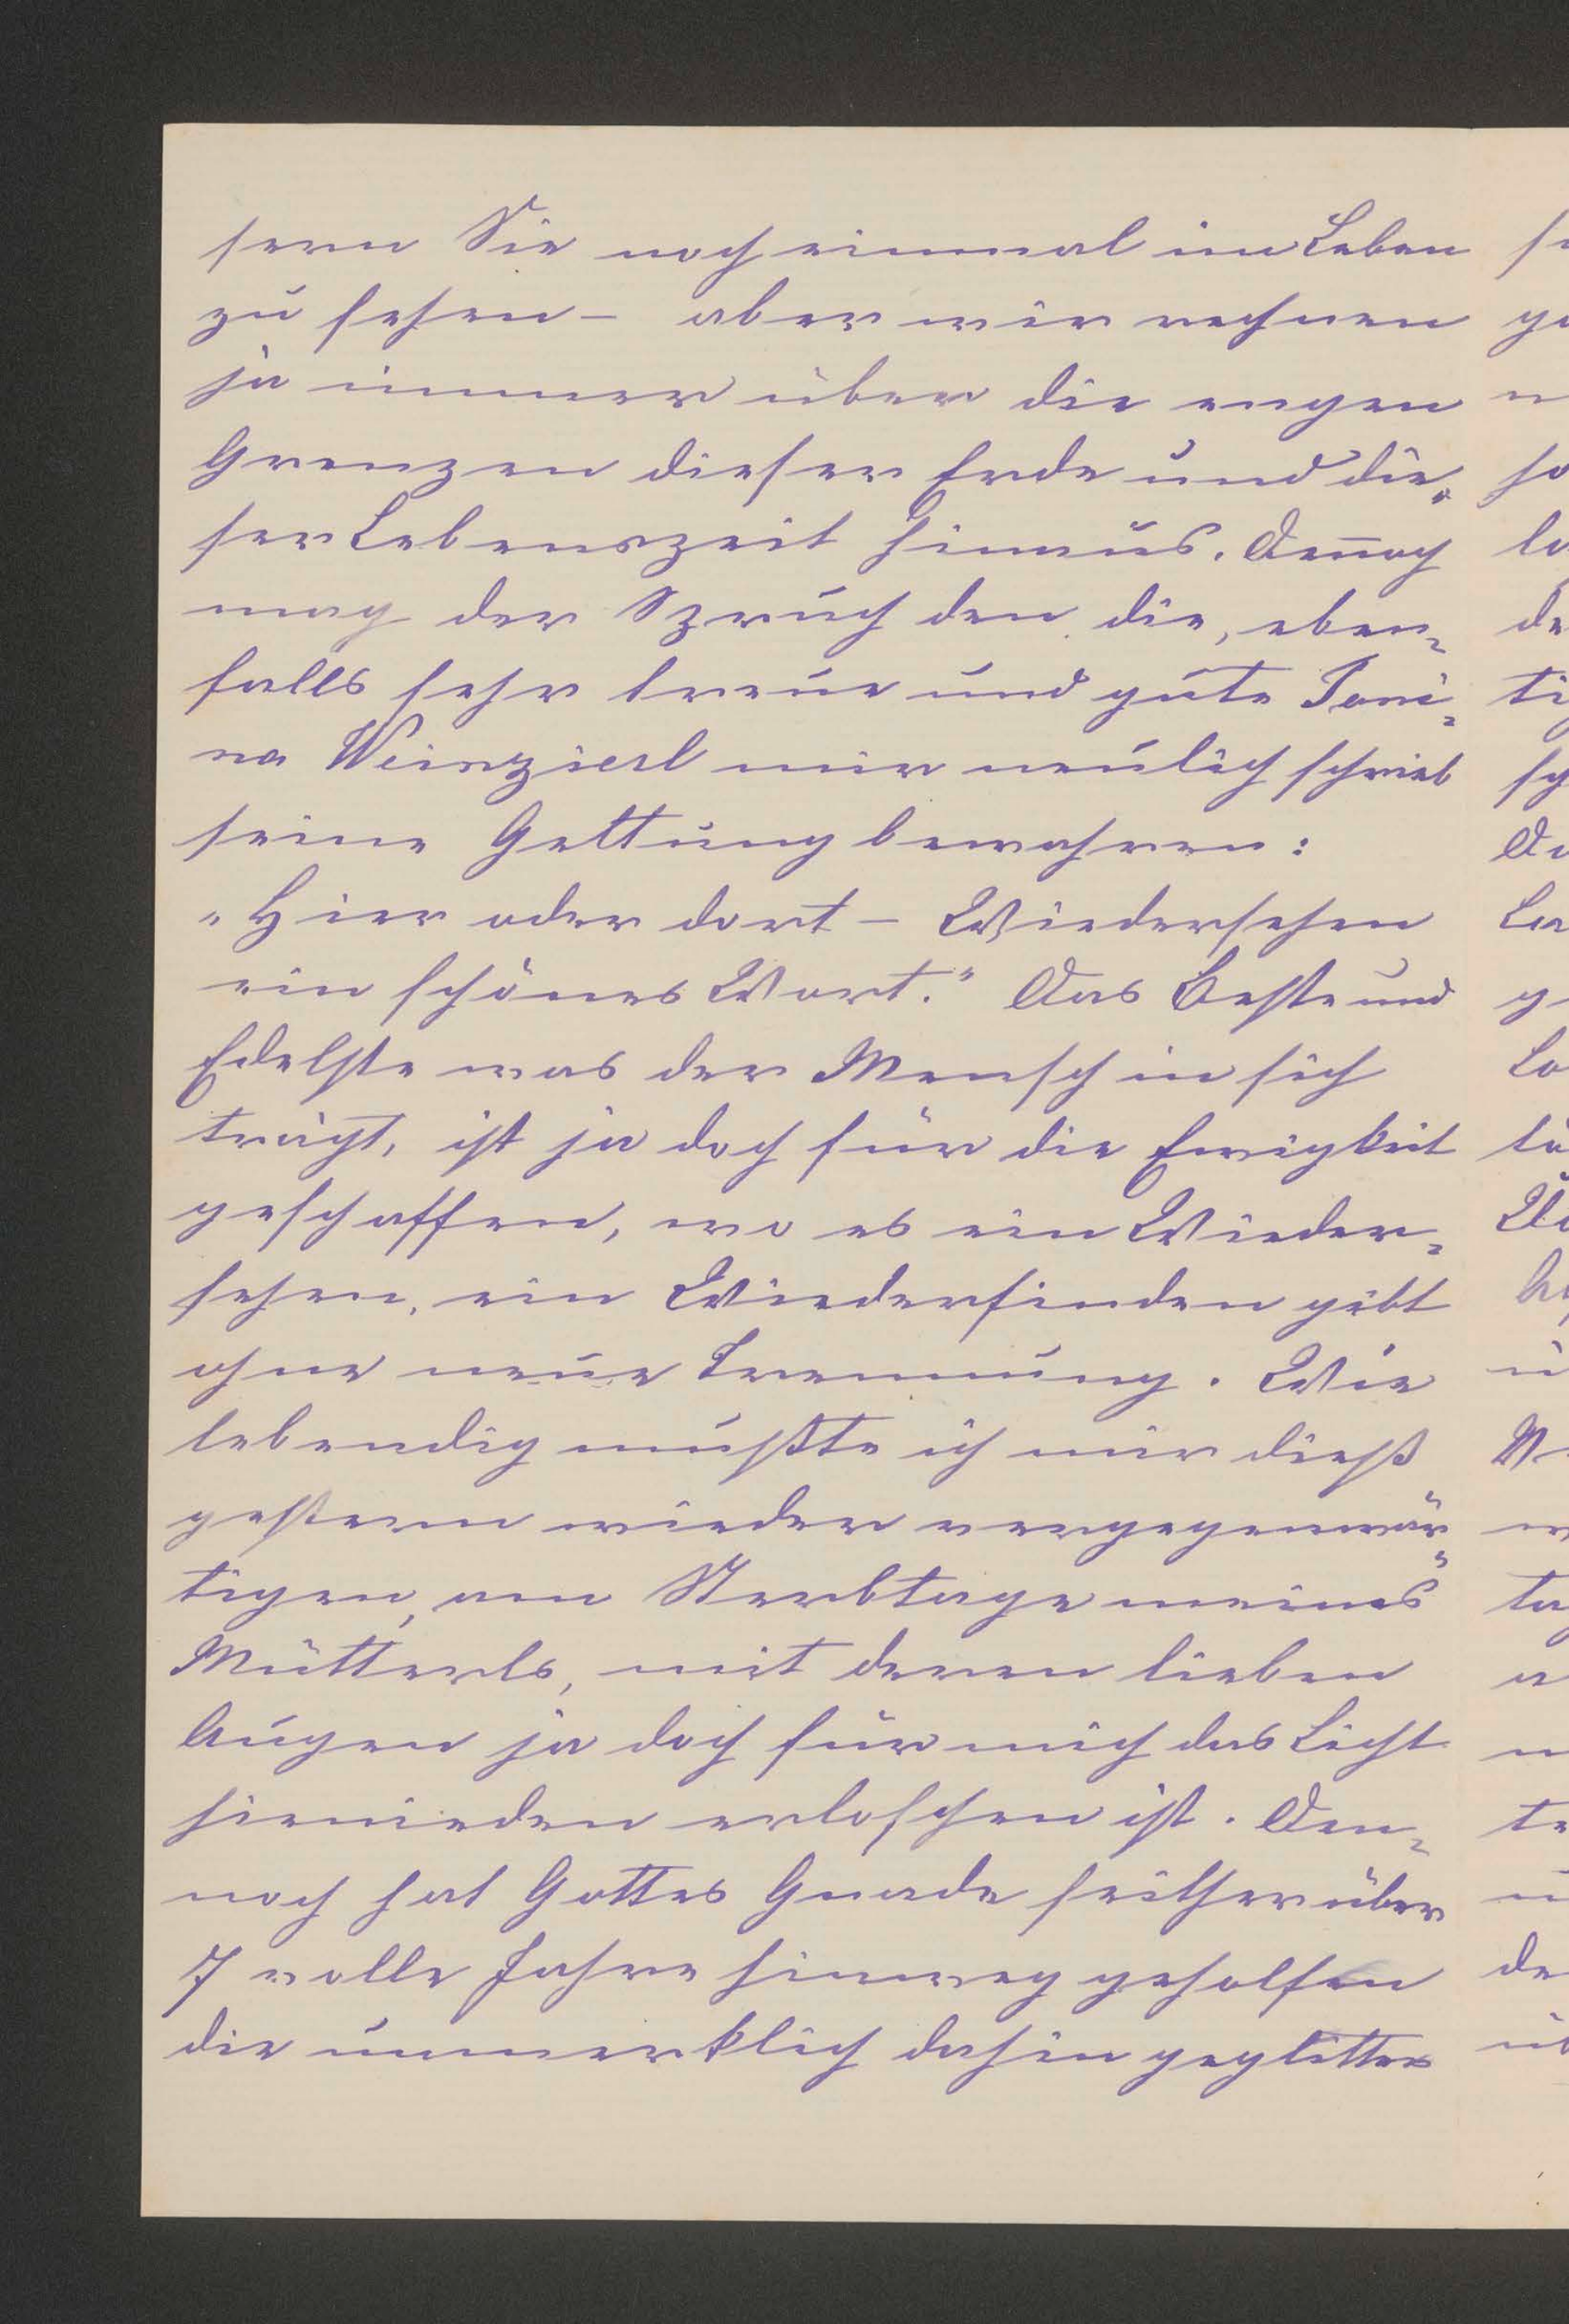 sern Sie noch einmal im Leben
zu sehen – aber wir rechnen
ja immer über die engen
Grenzen dieser Erde und die-
ser Lebenszeit hinaus. Deñoch
mag der Spruch den die, eben-
falls sehr treue und gute Toni-
na Weinzierl mir neulich schrieb
seine Geltung bewahren:
"Hier oder dort – Wiedersehen
ein schönes Wort." Das Beste und
Edelste was der Mensch in sich
trägt, ist ja doch für die Ewigkeit
geschaffen, wo es ein Wieder-
sehen, ein Wiederfinden gibt
ohne neue Trennung. Wie
lebendig mußte ich mir dieß
gestern wieder vergegenwär-
tigen, am Sterbtage meines
Mütterls, mit deren lieben
Augen ja doch für mich das Licht
hienieden erloschen ist. Den-
noch hat Gottes Gnade seither über
7 volle Jahre hinweg geholfen
die unmerklich dahin geglitten